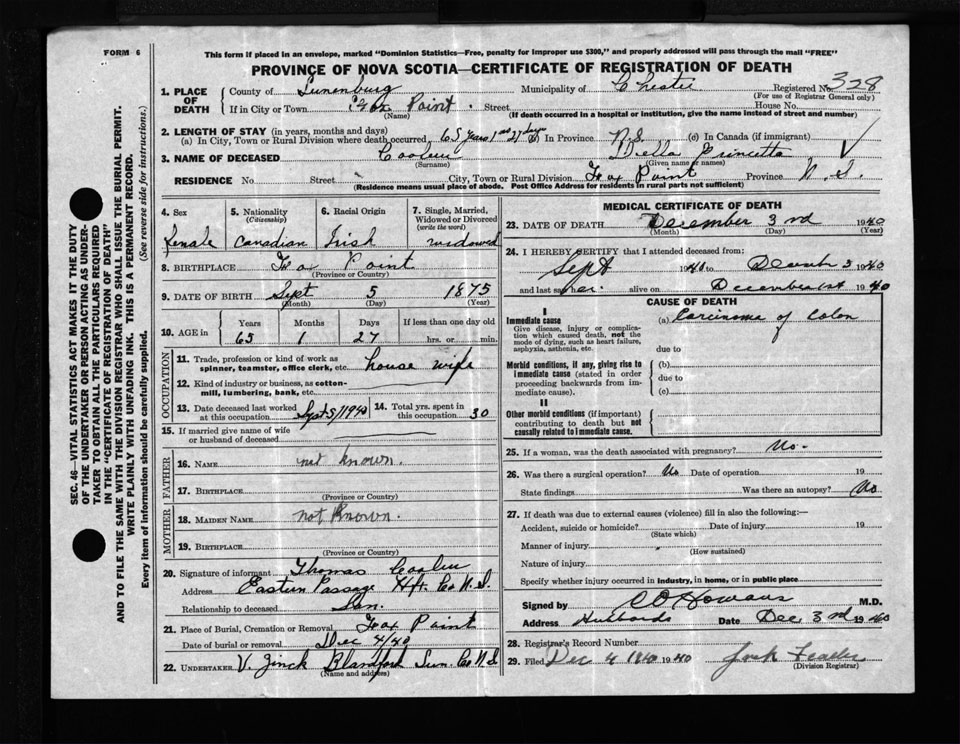 FORM 6
This form if placed in an envelope, marked "Dominion Statistics—Free, penalty for improper use $300," and properly addressed will pass through the mail "FREE"
PROVINCE OF NOVA SCOTIA—CERTIFICATE OF REGISTRATION OF DEATH
1. PLACE OF DEATH County of Lunenburg Municipality of Chester Registered No. 328
(For use of Registrar General only)
If in City or Town Fox Point. Street House No.
(Name) (If death occurred in a hospital or institution, give the name instead of street and number)
2. LENGTH OF STAY (in years, months and days)
(a) In City, Town or Rural Division where death occurred 65 years 1 27 days In Province N.S. (c) In Canada (if immigrant)
3. NAME OF DECEASED Della
(Surname) (Given name or names)
RESIDENCE No. Street City, Town or Rural Division Fox Point Province N.S.
(Residence means usual place of abode. Post Office Address for residents in rural parts not sufficient)
4. Sex 5. Nationality (Citizenship) 6. Racial Origin 7. Single, Married, Widowed or Divorced (write the word)
female Canadian Irish widowed
8. BIRTHPLACE Fox Point
(Province or Country)
9. DATE OF BIRTH Sept 5 1875
(Month) (Day) (Year)
10. AGE in Years Months Days If less than one day old
65 1 27 hrs. or min.
OCCUPATION
11. Trade, profession or kind of work as spinner, teamster, office clerk, etc. house wife
12. Kind of industry or business, as cotton-mill, lumbering, bank, etc.
13. Date deceased last worked at this occupation Sept 5/1940 14. Total yrs. spent in this occupation 30
15. If married give name of wife or husband of deceased
FATHER
16. NAME not known.
17. BIRTHPLACE
(Province or Country)
MOTHER
18. MAIDEN NAME not known.
19. BIRTHPLACE
(Province or Country)
20. Signature of informant Thomas
Address Eastern Passage Hfx Co N.S.
Relationship to deceased Son.
21. Place of Burial, Cremation or Removal Fox Point
Date of burial or removal Dec 4/40
22. UNDERTAKER V. Zinck Blandford Lun. Co N.S
(Name and address)
MEDICAL CERTIFICATE OF DEATH
23. DATE OF DEATH December 3rd 1940
(Month) (Day) (Year)
24. I HEREBY CERTIFY that I attended deceased from:
Sept 1940 to 3 1940
and last saw her alive on December 1st 1940
CAUSE OF DEATH
I
Immediate cause (a) Carcinoma of Colon
Give disease, injury or complication which caused death, not the mode of dying, such as heart failure, asphyxia, asthenia, etc.
due to
Morbid conditions, if any, giving rise to immediate cause (stated in order proceeding backwards from immediate cause).
(b)
due to
(c)
II
Other morbid conditions (if important) contributing to death but not causally related to immediate cause.
25. If a woman, was the death associated with pregnancy? No.
26. Was there a surgical operation? No Date of operation 19
State findings Was there an autopsy? No
27. If death was due to external causes (violence) fill in also the following:—
Accident, suicide or homicide? Date of injury 19
(State which)
Manner of injury
(How sustained)
Nature of injury
Specify whether injury occurred in industry, in home, or in public place
Signed by M.D.
Address Hubbards Date Dec 3rd 1940
28. Registrar's Record Number
29. Filed Dec 4 1940
(Division Registrar)
SEC. 46—VITAL STATISTICS ACT MAKES IT THE DUTY
OF THE UNDERTAKER OR PERSON ACTING AS UNDER-
TAKER TO OBTAIN ALL THE PARTICULARS REQUIRED
IN THE "CERTIFICATE OF REGISTRATION OF DEATH"
AND TO FILE THE SAME WITH THE DIVISION REGISTRAR WHO SHALL ISSUE THE BURIAL PERMIT.
WRITE PLAINLY WITH UNFADING INK. THIS IS A PERMANENT RECORD.
Every item of information should be carefully supplied. (See reverse side for instructions.)